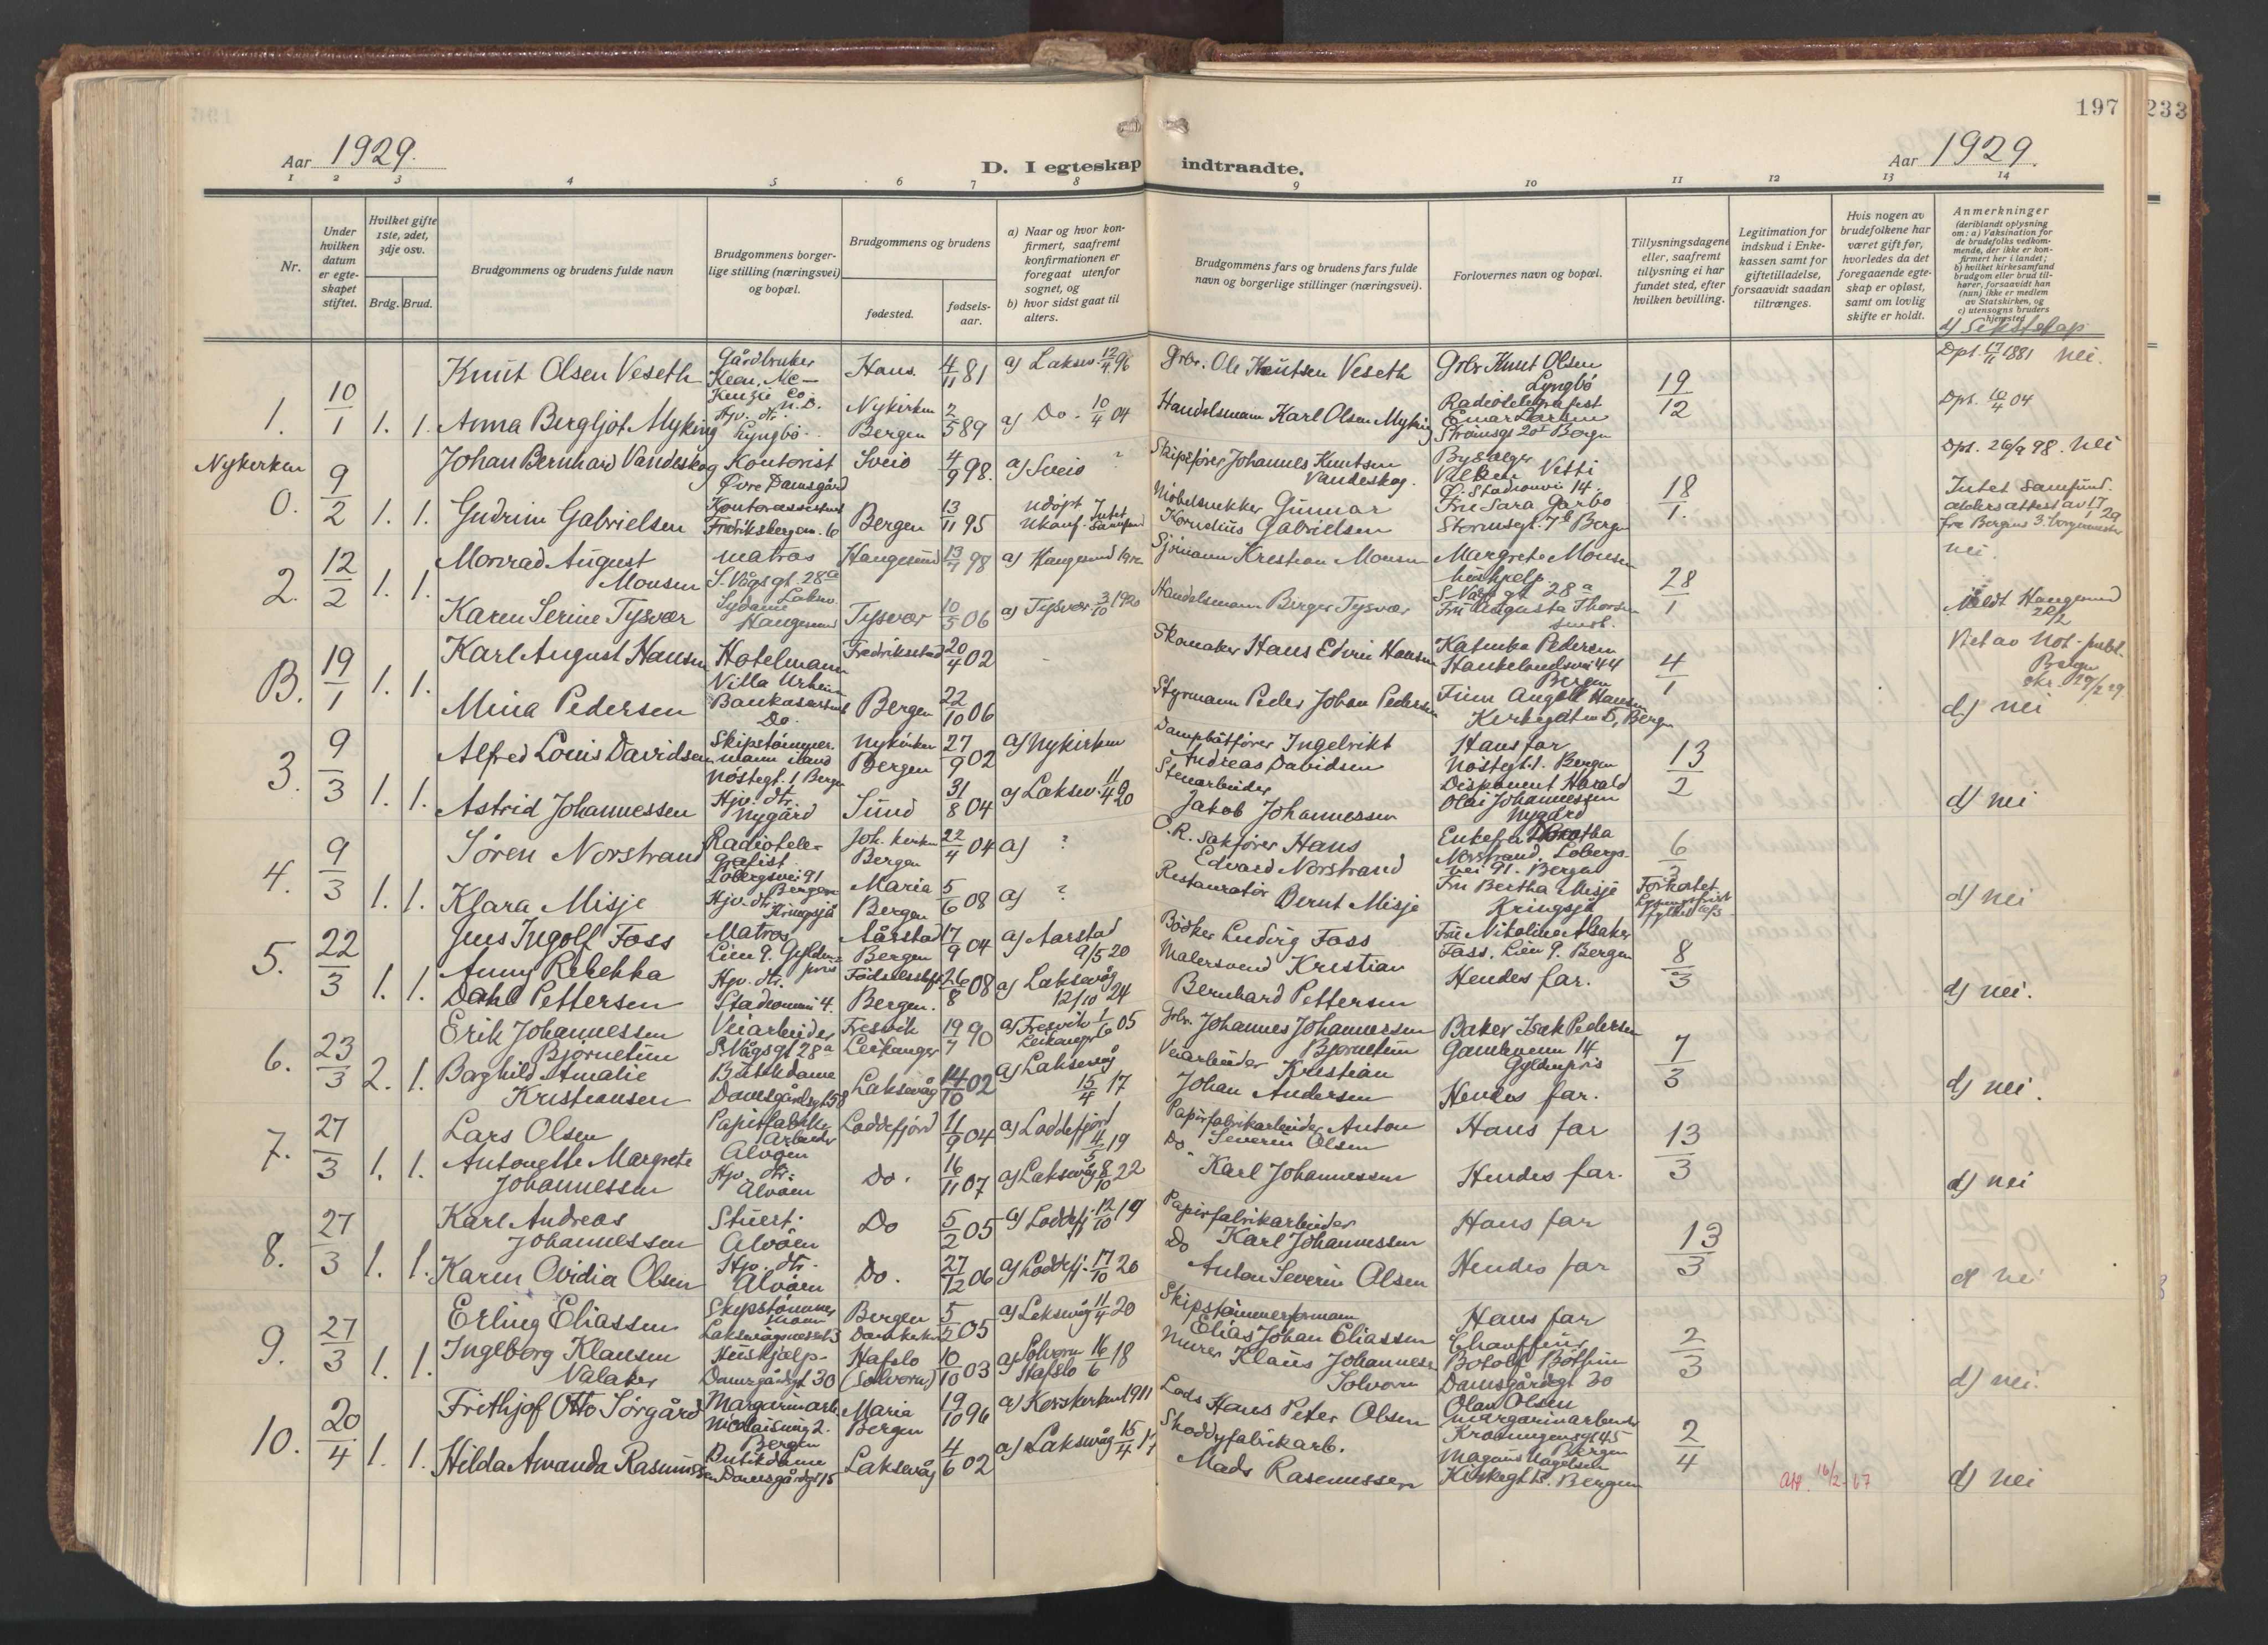 197
233
Aar 1929.
D. I egteskap indtraadte.
Aar 1929.
1 2 3 4 5 6 7 8 9 10 11 12 13 14
Nr.
Under hvilken datum er egteskapet stiftet.
Hvilket gifte 1ste, 2det, 3dje osv.
Brdg. Brud.
Brudgommens og brudens fulde navn
Brudgommens borgerlige stilling (næringsvei) og bopæl.
Brudgommens og brudens
fødested.
fødselsaar.
a) Naar og hvor konfirmert, saafremt konfirmationen er foregaat utenfor sognet, og
b) hvor sidst gaat til alters.
Brudgommens fars og brudens fars fulde navn og borgerlige stillinger (næringsvei).
Forlovernes navn og bopæl.
Tillysningsdagene eller, saafremt tillysning ei har fundet sted, efter hvilken bevilling.
Legitimation for indskud i Enkekassen samt for giftetilladelse, forsaavidt saadan tiltrænges.
Hvis nogen av brudefolkene har været gift før, hvorledes da det foregaaende egteskap er opløst, samt om lovlig skifte er holdt.
Anmerkninger
(deriblandt oplysning om: a) Vaksination for de brudefolks vedkommende, der ikke er konfirmert her i landet; b) hvilket kirkesamfund brudgom eller brud tilhører, forsaavidt han (hun) ikke er medlem av Statskirken, og c) utensogns bruders hjemsted
1. 10/1 1. 1.
Knut Olsen Veseth
Gårdbruker
Haus. 4/11 81
a) Laksev. 12/4 96
Grbr. Ole Knutsen Veseth
Grbr Knut Olsen
Lyngbö
19/12
Døpt. 17/11 1881 nei.
Anna Bergljot Myking
Hjv. dtr.
Lyngbö
Nykirken
Bergen 2/5 89
a) Do. 10/4 04
Handelsmann Karl Olsen Myking
Radiotelegrafist
Einar Larsen
Strömsgt 20 I Bergen
Døpt. 10/4 04
Nykirken
0. 9/2 1. 1.
Johan Bernhard Vandeskog
Kontorist
Øvre Damsgård
Sveio 4/9 98.
a) Sveio ?
Skipsfører Johannes Knutsen
Vandeskog.
Ø. Stadionvei 14.
18/1.
Døpt. 26/9 98. nei
Gudrun Gabrielsen
Kontorassistent
Fredriksbergsgt. 6
Bergen 13/11 95
udøpt
Ukonf.
Møbelsnekker Gunnar
Kornelius Gabrielsen
Fru Sara Garbo
Stormsgt. 7 b Bergen
Intet samfund.
aldersattest av 17/1 29
fra Bergens 3. borgermester
2. 12/2 1. 1.
Monrad August
Monsen
matros
S. Vågsgt. 28 a
Laksev.
Haugesund 13/7 98
a) Haugesund 1912
Sjömann Kristian Monsen
Margrete Monsen
hushjelp
S. Vågsgt 28 a
28/1
nei.
Karen Serine Tysvær
Sydame
Haugesund
Tysvær 10/5 06
a) Tysvær 3/10 1920
Handelsmann Berger Tysvær
Fru Augusta Thorsen
smst.
Meldt Haugesund
20/2
B. 19/1 1. 1.
Karl August Hansen
Hotelmann
Villa Urheim
Fredrikstad 20/4 02
Skomaker Hans Edvin Hansen
Katinka Pedersen
Haukelandsvei 44
Bergen
4/1
Viet av Not. publ.
Bergen
Mina Pedersen
Bankassistent
Do.
Bergen 22/10 06
Styrmann Peder Johan Pedersen
Finn Angell Hansen
Kirkegaten 5, Bergen
d) nei
3. 9/3 1. 1.
Alfred Louis Davidsen
Skipstömmermann
Nöstegt. 1 Bergen
Nykirken
Bergen 27/9 02
a) Nykirken
Dampbåtfører Ingelrikt
Andreas Davidsen
Hans far
Nöstegt. 1. Bergen
13/2
Astrid Johannessen
Hjv. dtr.
Nygård
Sund 31/8 04
a) Laksev. 11/4 20
Stenarbeider
Jakob Johannessen
Disponent Harald
Olai Johannessen
Nygård
d) nei
4. 9/3 1. 1.
Sören Norstrand
Radiotelegrafist
Löbergsvei 91
Bergen
Joh. kirken
Bergen 22/4 04
a) ?
O.R. Sakfører Hans
Edvard Norstrand
Enkefru Dorothea
Norstrand, Löbergsvei 91. Bergen
6/3
Klara Misje
Hjv. dtr.
Kringsjå
Maria
Bergen 5/6 08
a) ?
Restauratör Bernt Misje
Fru Bertha Misje
Kringsjå
Forkortet
d) nei
5. 22/3 1. 1.
Jens Ingolf Foss
Matros
Lien 9. Gyldenpris
Aarstad
Bergen 17/9 04
a) Aarstad
9/5 20
Bödker Ludvig Foss
Foss, Lien 9. Bergen
8/3
Anny Rebekka
Dahl Pettersen
Hjv. dtr.
Stadionvei 4.
Bergen. 26/8 08
a) Laksevåg
12/10 24
Malersvend Kristian
Bernhard Pettersen
Hendes far.
d) nei.
6. 23/3 2. 1.
Erik Johannessen
Bjørnetun
Veiarbeider
S. Vågsgt 28 a
Fresvik
Leikanger 19/7 90
a) Fresvik 1/6 05
Leikanger
Grbr. Johannes Johannessen
Bjørnetun
Baker Isak Pedersen
Gyldenpris
7/3
Borghild Amalie
Kristiansen
Butikdame
Damsgårdsgt 158
Laksevåg 14/10 02
a) Laksevåg
15/4 17
Veiarbeider Kristian
Johan Andersen
Hendes far.
d) nei.
7. 27/3 1. 1.
Lars Olsen
Papirfabrikarbeider
Alvöen
Loddefjord 11/9 04
a) Loddefjord
4/5 19
Papirfabrikarbeider Anton
Severin Olsen
Hans far
13/3
Antonette Margrete
Johannessen
Hjv. dtr.
Alvöen
Do. 16/11 07
a) Laksevåg 8/10 22
Do.
Karl Johannessen
Hendes far.
d) nei
8. 27/3 1. 1.
Karl Andreas
Johannessen
Stuert.
Alvöen
Do 5/2 05
a) Loddefj. 12/10 19
Papirfabrikarbeider
Karl Johannessen
Hans far
13/3
Karen Ovidia Olsen
Hjv. dtr.
Alvöen
Do. 27/12 06
a) Loddefj. 17/10 20
Do
Anton Severin Olsen
Hendes far
d) nei
9. 27/3 1. 1.
Erling Eliassen
Skipstömmermann
Laksevågneset 3
Bergen
Domkirken 5/2 05
a) Laksevåg 11/4 20
Skipstömmerformann
Elias Johan Eliassen
Hans far
2/3
Ingeborg Klausen
Valaker
Hushjælp.
Damsgårdsgt 30
Hafslo
(Solvorn) 10/10 03
a) Solvorn 16/6 18
Hafslo
Murer Klaus Johannesen
Solvorn
Chauffeur
Botolf Böthun
Damsgårdsgt 30
d) nei.
10. 20/4 1. 1.
Frithjof Otto Sörgård
Margarinarb.
Nicolaismug 2.
Bergen
Maria
Bergen 19/10 96
a) Korskirken 1911
Lods Hans Peter Olsen
Olav Olsen
margarinarbeider
Kroningensgt 45
Bergen
2/4
Hilda Amanda Rasmussen
Butikdame
Damsgårdsgt 15
Laksevåg 4/6 02
a) Laksevåg 15/4 17
Shoddyfabrikarb.
Mads Rasmussen
Magnus Hagelsen
Kirkegt 13. Bergen
att. 16/2-67
d) nei